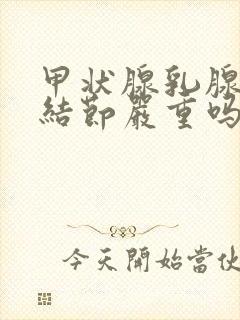 甲状腺乳腺
結節嚴重吗
今天開始當伙